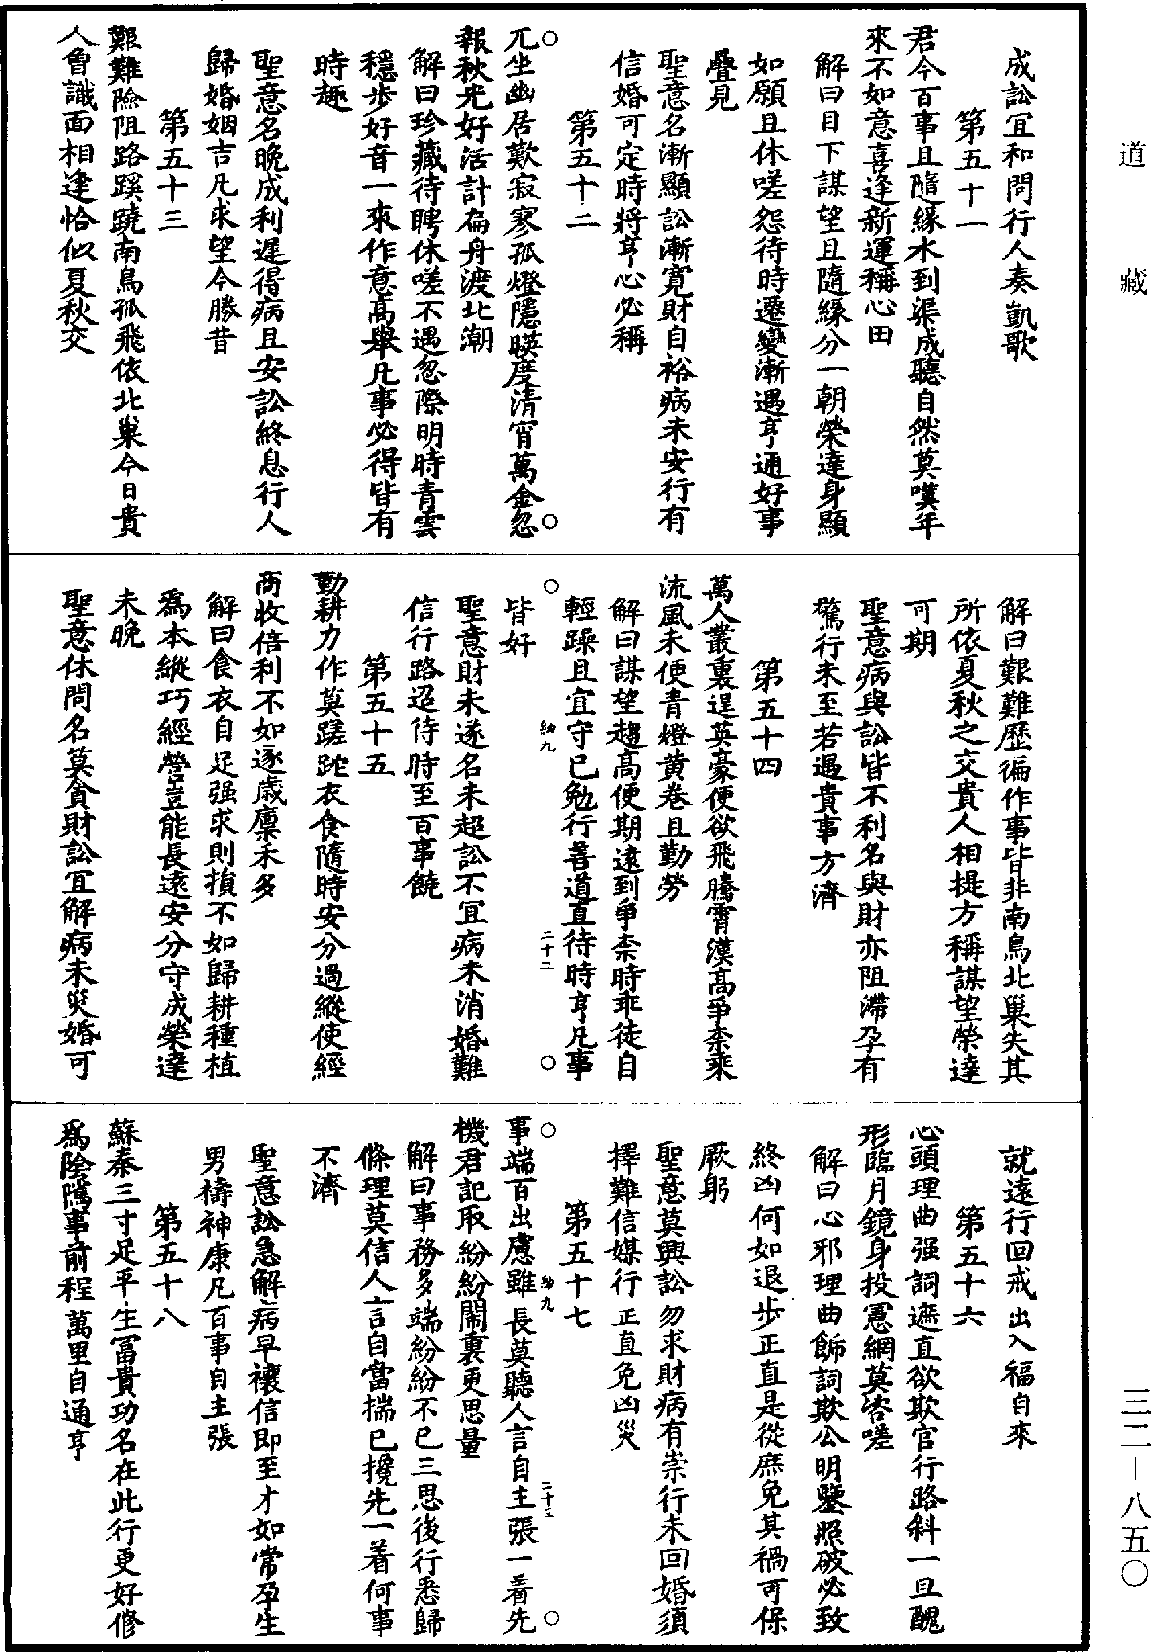 成訟宜和問行人奏凱歌
第五十一
君今百事且隨緣水到渠成聽自然莫嘆年
來不如意喜逢新運稱心田
解曰目下謀望且隨緣分一朝榮達身顯
如願且休嗟怨待時遷變漸遇亨通好事
疊見
聖意名漸顯訟漸寬財自裕病未安行有
信婚可定時將亨心必稱
第五十二
兀坐幽居歎寂寥孤燈隱暎度清宵萬金忽
報秋光好活計扁舟渡北潮
解曰珍藏待聘休嗟不遇忽際明時青雲
穩步好音一來作意高舉凡事必得皆有
時趣
聖意名晚成利遲得病且安訟終息行人
歸婚姻吉凡求望今勝昔
第五十三
艱難險阻路蹊蹺南鳥孤飛依北巢今日貴
人會識面相逢恰似夏秋交
解曰艱難歷徧作事皆非南鳥北巢失其
所依夏秋之交貴人相提方稱謀望榮達
可期
聖意病與訟皆不利名與財亦阻滯孕有
驚行未至若遇貴事方濟
第五十四
萬人叢裏逞英豪便欲飛騰霄漢高爭柰乘
流風未便青燈黄卷且勤勞
解曰謀望趨高便期遠到爭柰時乖徒自
輕躁且宜守已勉行善道直待時亨凡事
皆好
聖意財未遂名未超訟不宜病未消婚難
信行路迢待時至百事饒
第五十五
勤耕力作莫蹉跎衣食隨時安分過縱使經
商收倍利不如逐歲廪禾多
解曰食衣自足强求則損不如歸耕種植
爲本縱巧經營豈能長遠安分守成榮達
未晚
聖意休問名莫貪財訟宜解病未災婚可
就遠行回戒出入福自來
第五十六
心頭理曲强詞遮直欲欺官行路斜一旦醜
形臨月鏡身投憲網莫咨嗟
解曰心邪理曲飾詞欺公明鑒照破必致
終凶何如退步正直是從庶免其禍可保
厥躬
聖意莫興訟勿求財病有祟行未回婚須
擇難信媒行正直免凶災
第五十七
事端百出慮雖長莫聽人言自主張一着先
機君記取紛紛鬧裏更思量
解曰事務多端紛紛不已三思後行悉歸
條理莫信人言自當揣已攙先一着何事
不濟
聖意訟急解病早禳信即至才如常孕生
男禱神康凡百事自主張
第五十八
蘇秦三寸足平生富貴功名在此行更好修
爲陰隲事前程萬里自通亨
道藏
三二－八五〇